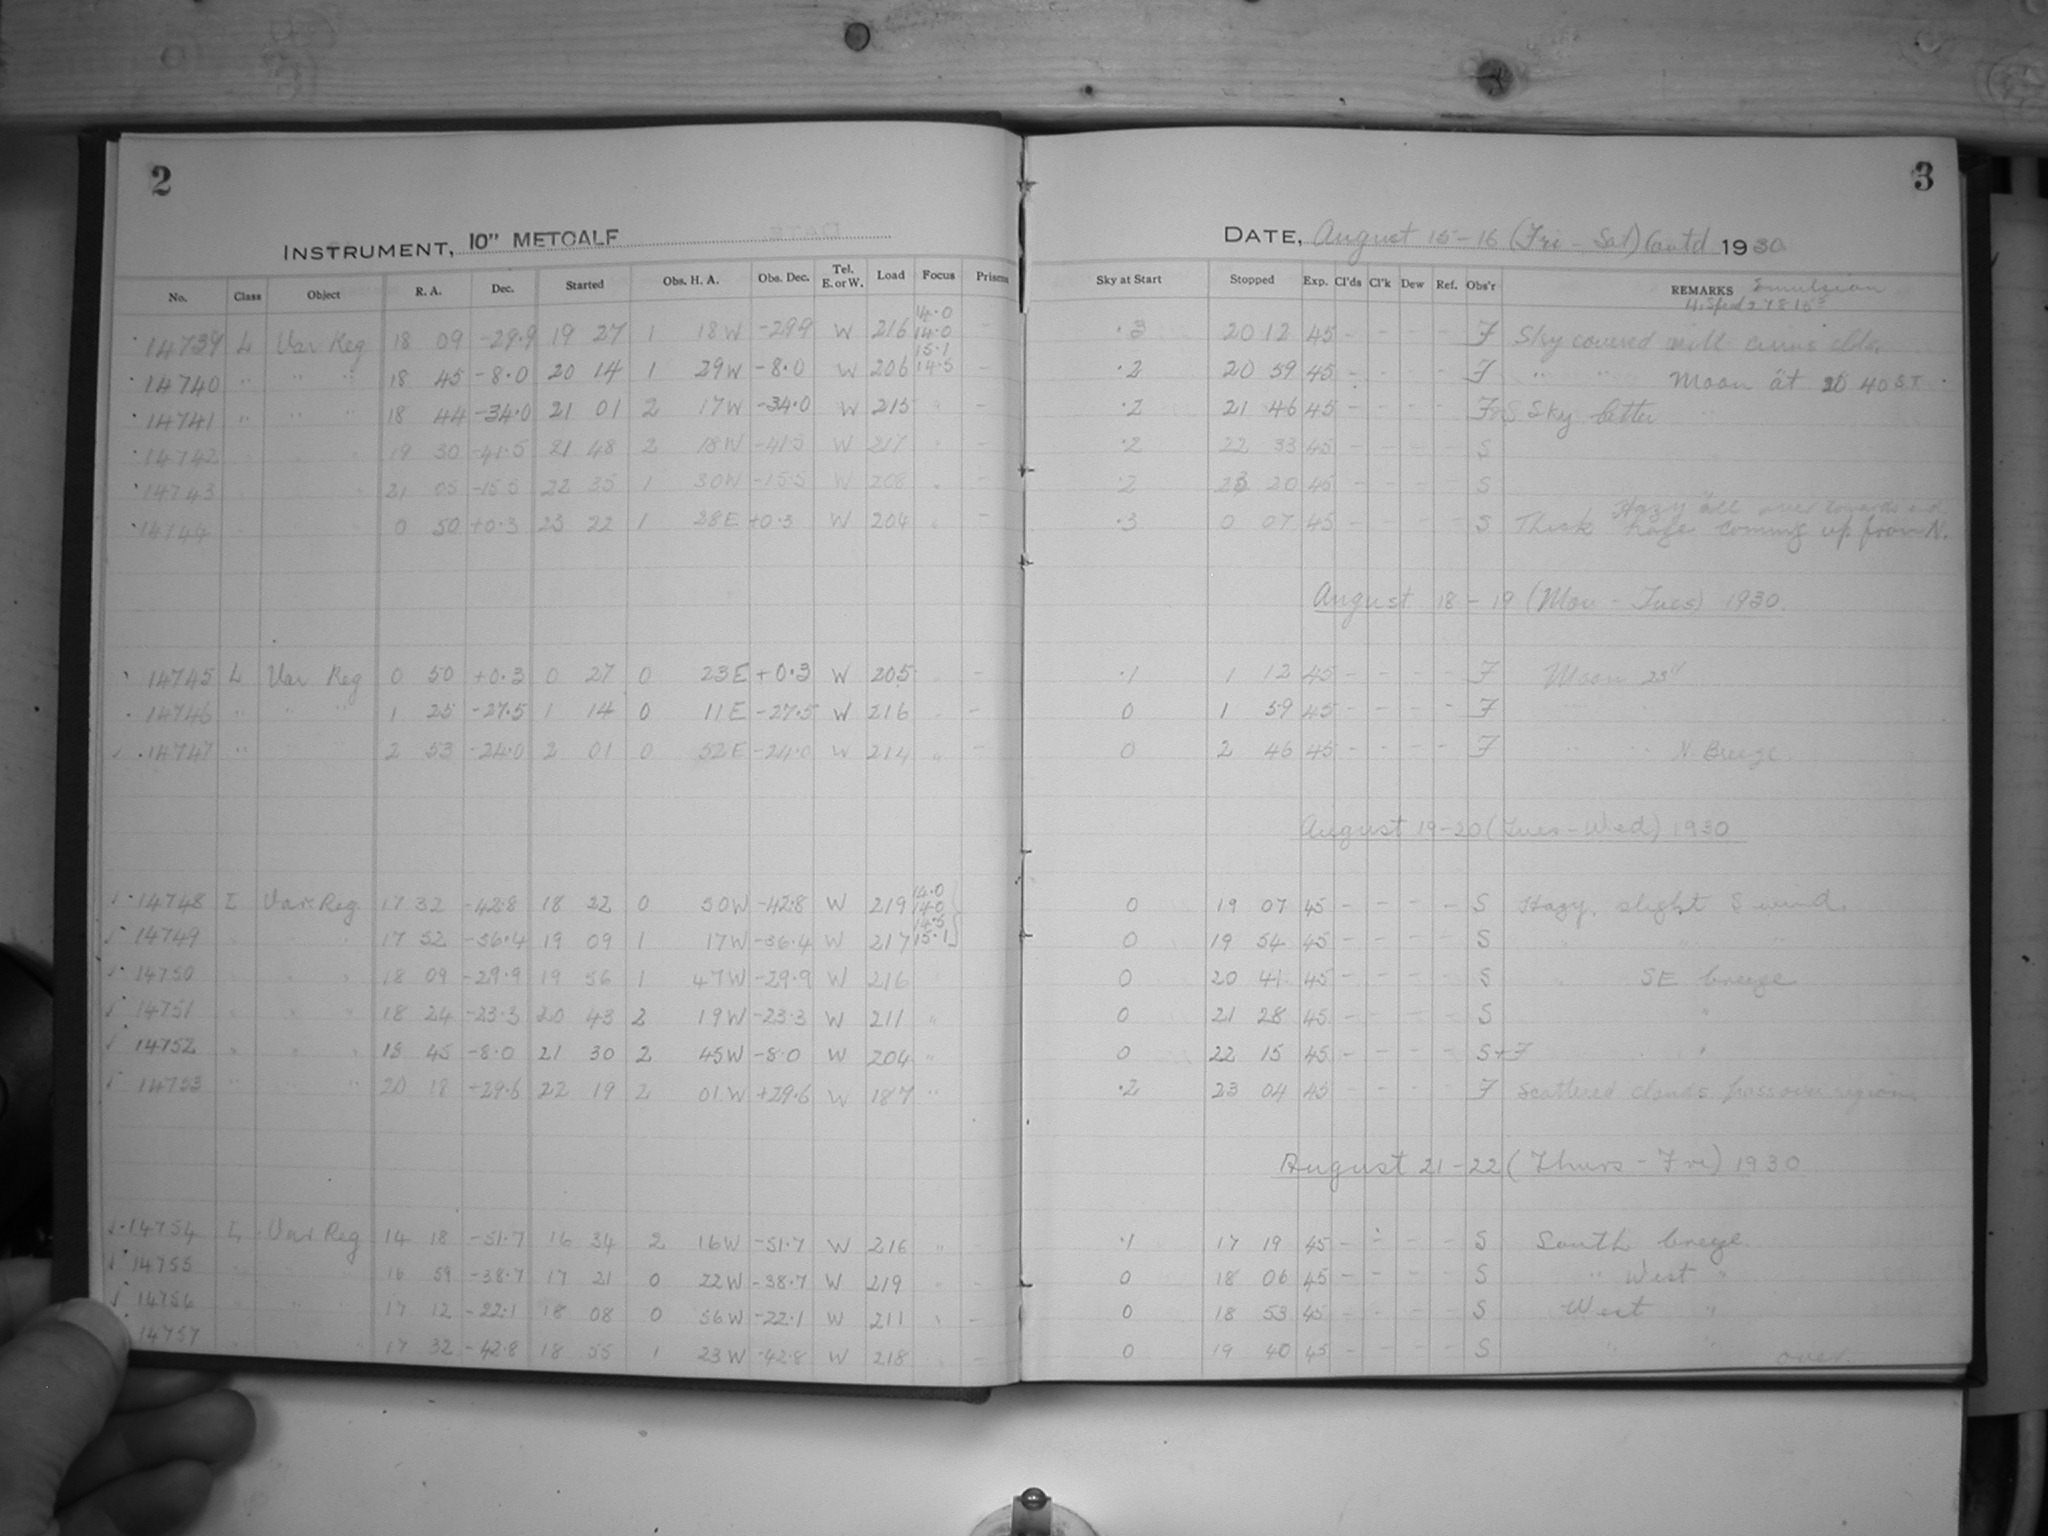 2
INSTRUMENT, 10" METCALF
No. Class Object R. A. Dec. Started Obs. H. A. Obs. Dec. Tel. E. or W. Load Focus Prisms
14739 L Var Reg 18 09 -29.9 19 27 1 18W -29.9 W 216 14.0 14.0 -
14740 " " " 18 45 -8.0 20 14 1 29W -8.0 W 206 15.1 14.5 -
14741 " " " 18 44 -34.0 21 01 2 17W -34.0 W 215 " -
14742 19 30 -41.5 21 48 2 18W -41.5 W 217 " -
14743 21 05 -15.5 22 35 1 30W -15.5 W 208 " -
14744 0 50 +0.3 23 22 1 28E +0.3 W 204 " -
14745 L Var Reg 0 50 +0.3 0 27 0 23E +0.3 W 205 -
14746 " " " 1 25 -27.5 1 14 0 11E -27.5 W 216 -
14747 " 2 53 -24.0 2 01 0 52E -24.0 W 214 " -
14748 L Var Reg 17 32 -42.8 18 22 0 50W -42.8 W 219 14.0 14.0
14749 17 52 -36.4 19 09 1 17W -36.4 W 217 14.5 15.1
14750 18 09 -29.9 19 56 1 47W -29.9 W 216
14751 18 24 -23.3 20 43 2 19W -23.3 W 211 "
14752 18 45 -8.0 21 30 2 45W -8.0 W 204 "
14753 " " " 20 18 +29.6 22 19 2 01W +29.6 W 187 "
14754 L Var Reg 14 18 -51.7 16 34 2 16W -51.7 W 216 "
14755 16 59 -38.7 17 21 0 22W -38.7 W 219 -
14756 " " 17 12 -22.1 18 08 0 56W -22.1 W 211 " -
14757 17 32 -42.8 18 55 1 23W -42.8 W 218 -
3
DATE, August 15-16 (Fri - Sat) Contd 1930
Sky at Start Stopped Exp. Cl'ds Cl'k Dew Ref. Obs'r REMARKS Emulsion
.3 20 12 45 - - - - F Sky covered with cirrus clds.
.2 20 59 45 - - - - F " " Moon at 20 40 S.T.
.2 21 46 45 - - - - F&S Sky better
.2 22 33 45 - - - - S
.2 23 20 45 - - - - S
Hazy all over towards end
.3 0 07 45 - - - - S Thick haze coming up from N.
August 18-19 (Mon - Tues) 1930.
.1 1 12 45 - - - - F Moon 23d
0 1 59 45 - - - - F
0 2 46 45 - - - - F " " N. Breeze.
August 19-20 (Tues-Wed) 1930
0 19 07 45 - - - - S Hazy, slight S wind.
0 19 54 45 - - - - S " " "
0 20 41 45 - - - - S " SE breeze
0 21 28 45 - - - - S "
0 22 15 45 - - - - S+F "
.2 23 04 45 - - - - F Scattered clouds pass over region.
August 21-22 (Thurs - Fri) 1930
.1 17 19 45 - - - - S South breeze
0 18 06 45 - - - - S " West "
0 18 53 45 - - - - S West "
0 19 40 45 - - - - S " "
over.